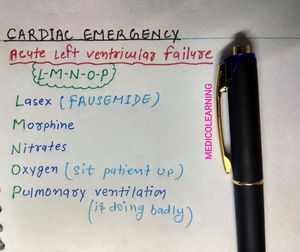 CARDIAC EMERGENCY
Acute Left ventricular failure
L-M-N-O-P
Lasex (FRUSEMIDE)
Morphine
Nitrates
Oxygen (Sit patient up)
Pulmonary ventilation
(if doing badly)
MEDICOLEARNING